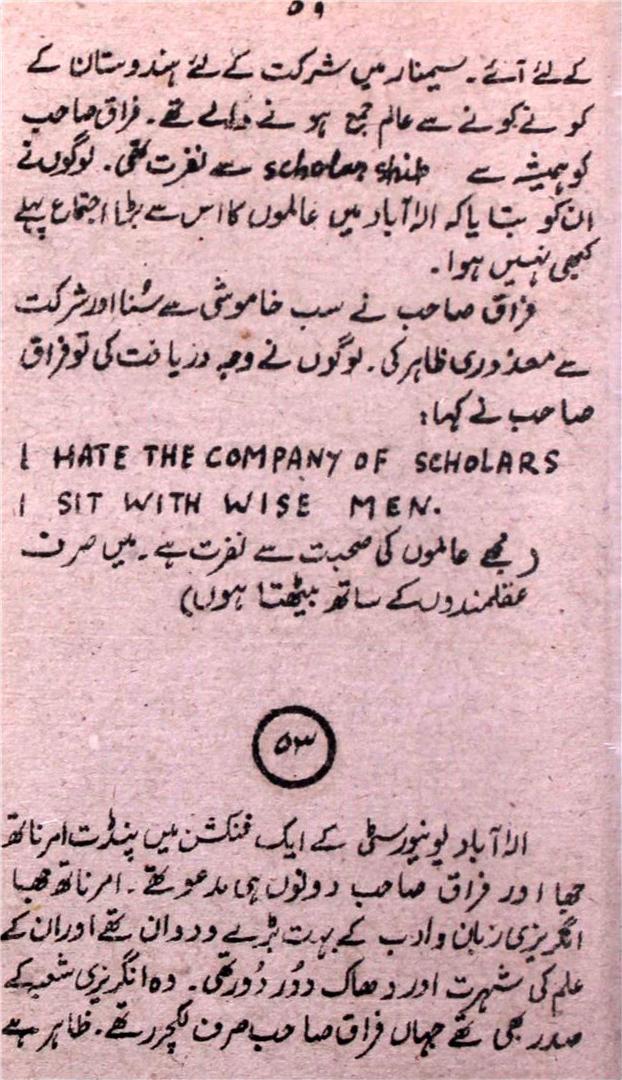 ۵۹
کے لئے آئے۔ سیمنار میں شرکت کے لئے ہندوستان کے
کونے کونے سے عالم جمع ہونے والے تھے۔ فراق صاحب
کو ہمیشہ سے scholarship سے نفرت تھی۔ لوگوں نے
ان کو بتایا کہ الہٰ آباد میں عالموں کا اس سے بڑا اجتماع پہلے
کبھی نہیں ہوا۔
فراق صاحب نے سب خاموشی سے سُنا اور شرکت
سے معذوری ظاہر کی۔ لوگوں نے وجہ دریافت کی تو فراق
صاحب نے کہا:
I HATE THE COMPANY OF SCHOLARS
I SIT WITH WISE MEN.
(مجھے عالموں کی صحبت سے نفرت ہے۔ میں صرف
عقلمندوں کے ساتھ بیٹھتا ہوں)
۵۳
الہٰ آباد یونیورسٹی کے ایک فنکشن میں پنڈت امرناتھ
جھا اور فراق صاحب دونوں ہی مدعو تھے۔ امرناتھ جھا
انگریزی زبان و ادب کے بہت بڑے ودوان تھے اور ان کے
علم کی شہرت اور دھاک دُور دُور تھی۔ وہ انگریزی شعبہ کے
صدر بھی تھے جہاں فراق صاحب صرف لکچرر تھے۔ ظاہر ہے